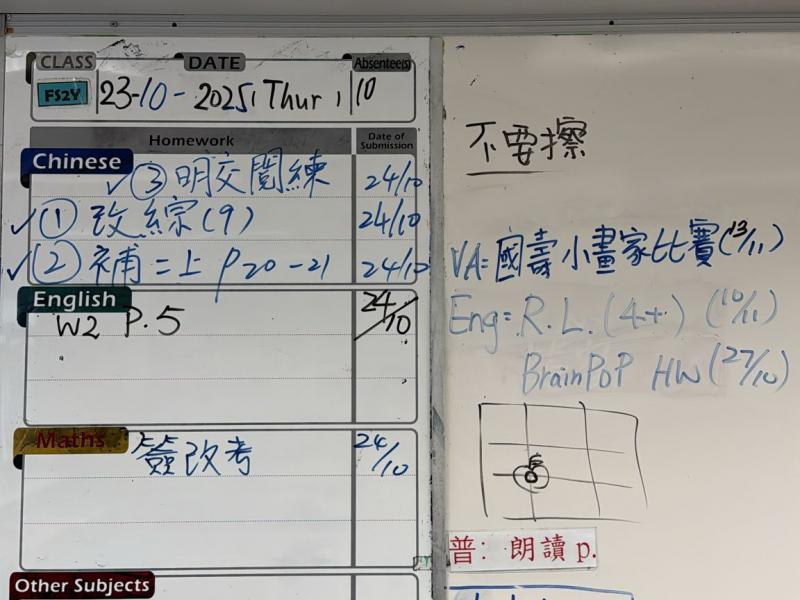 CLASS DATE Absentee(s)
FS2Y 23-10-2025, Thur, 10
Homework Date of Submission
Chinese
✓③明交閱練 24/10
✓①改綜(9) 24/10
✓②補二上 P20-21 24/10
English
W2 P.5 24/10
Maths
簽改考 24/10
Other Subjects
不要擦
VA=國壽小畫家比賽(13/11)
Eng=R.L.(4+) (10/11)
BrainPOP HW(27/10)
普：朗讀 p.